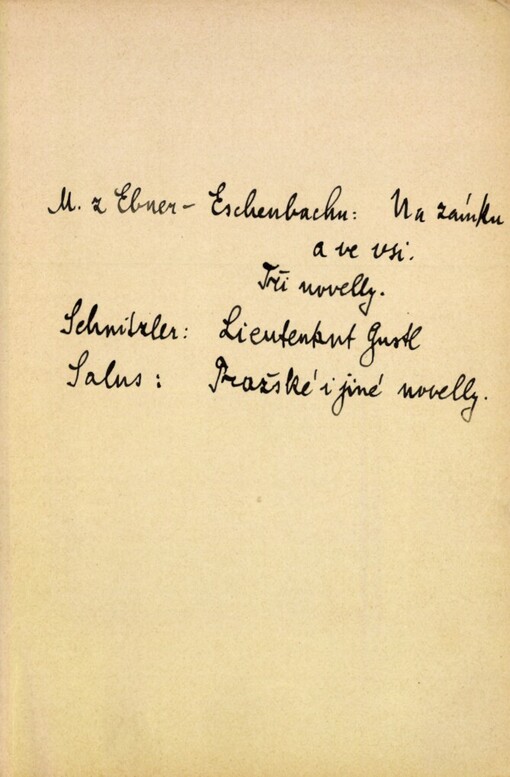 M. z Ebner-Eschenbachu: Na zámku
a ve vsi.
Tři novelly.
Schnitzler: Lieutenant Gustl
Salus: Pražské i jiné novelly.